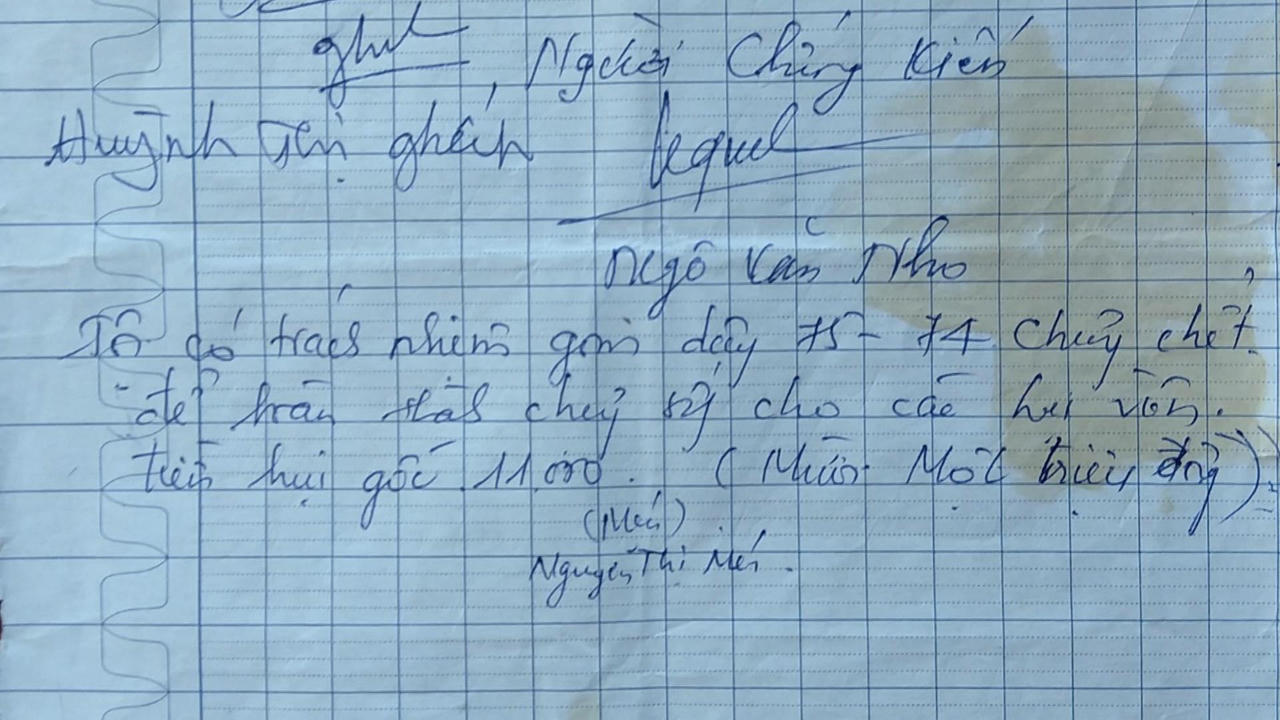 ghét, Người Chứng Kiến
Huỳnh Thị ghếch
Ngô Văn Nho
Tôi có trách nhiệm gom dây 75 - 74 Chủy chết.
để hoàn tất chuỷ cho các hụi viên.
tiền hụi gốc 11.000. (Mười Một triệu đồng).
(Mến)
Nguyễn Thị Mến.